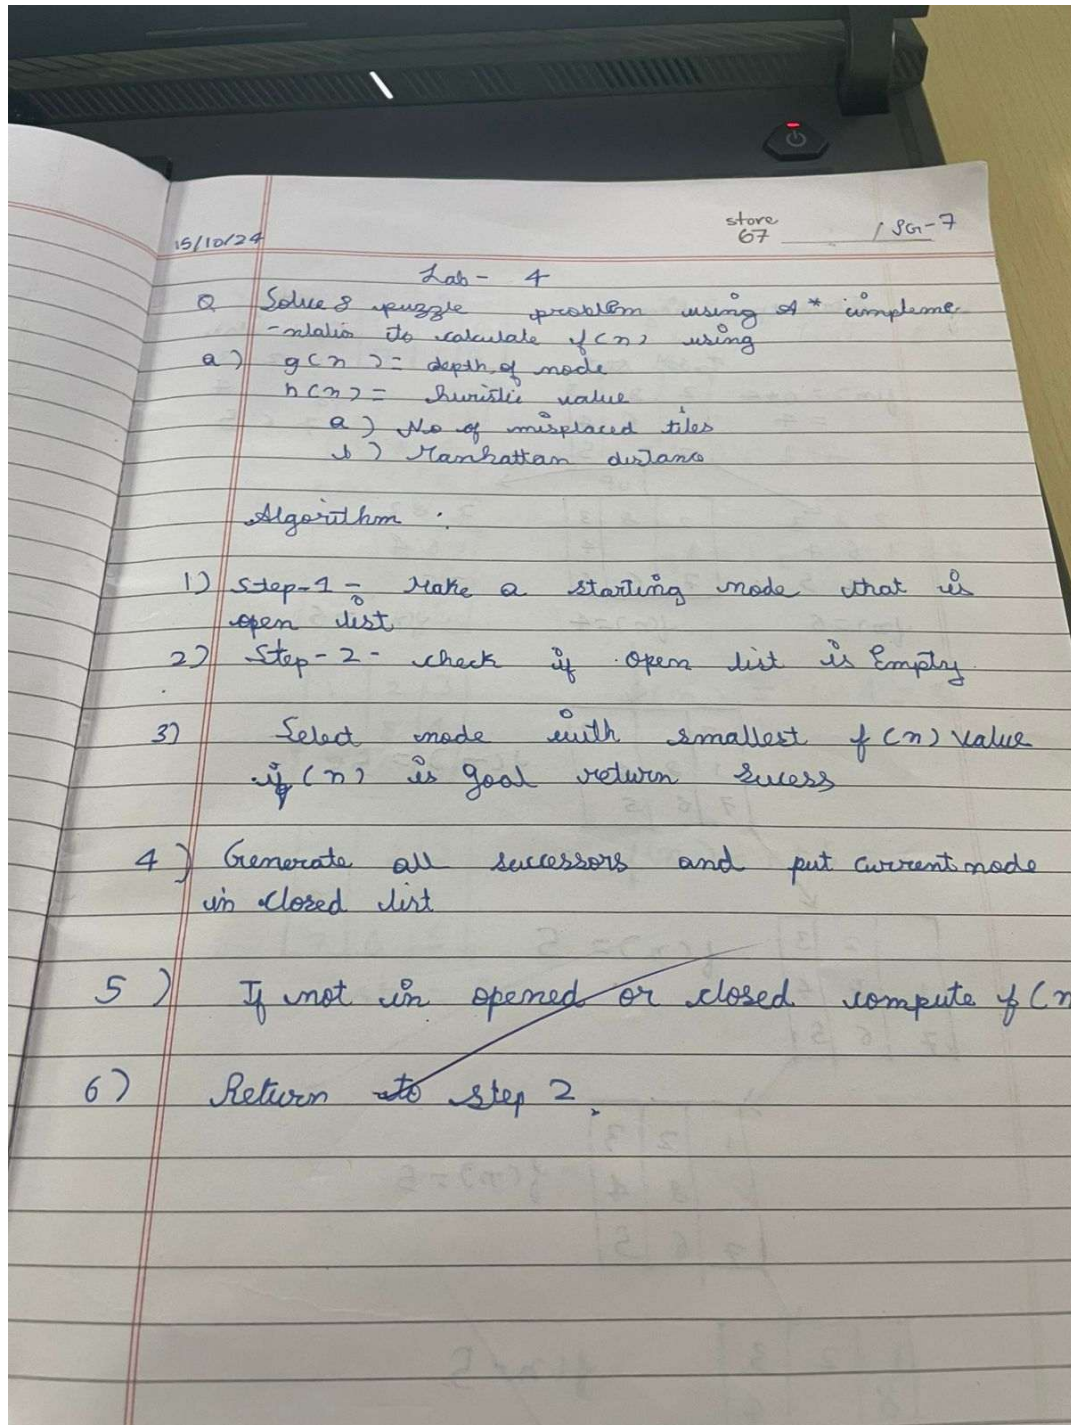 store
15/10/24 67 / SG-7
Lab - 4
Q Solve 8 puzzle problem using A* impleme
-ntatio to calculate f(n) using
a) g(n) = depth of node
h(n) = huristic value
a) No of misplaced tiles
b) Manhattan distanc
Algorithm :
1) Step-1 - Make a starting node that is
open list
2) Step-2 - check if open list is Empty.
3) Select node with smallest f(n) value
if (n) is goal return sucess
4) Generate all successors and put current node
in closed list
5) If not in opened or closed compute f(n
6) Return to step 2.